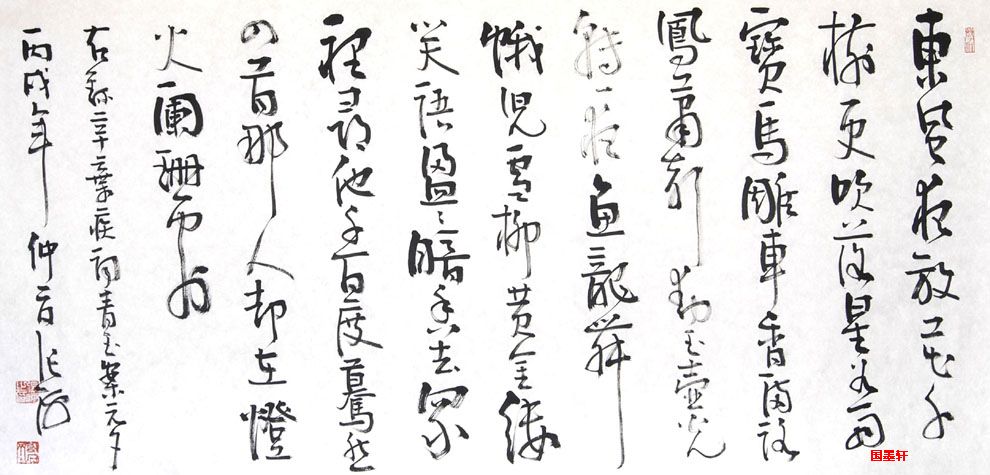 東風夜放花千
樹更吹落星如雨
寶馬雕車香滿路
鳳簫聲動玉壺光
轉一夜魚龍舞
蛾兒雪柳黄金縷
笑語盈〻暗香去眾
裡尋他千百度驀然
回首那人却在燈
火闌珊處
右録辛棄疾詞青玉案元夕
丙戌年 仲
国墨轩